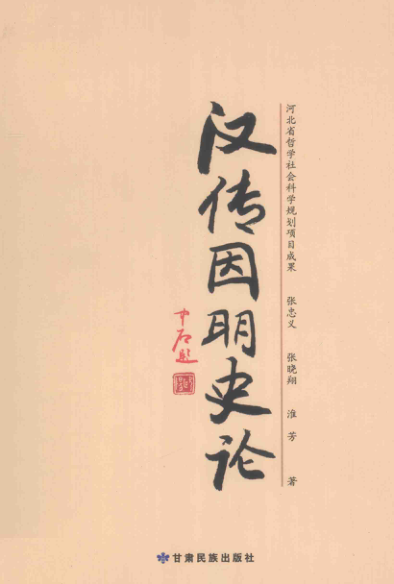 河北省哲学社会科学规划项目成果 张忠义 张晓翔 淮芳 著
汉传因明史论
中石题
甘肃民族出版社